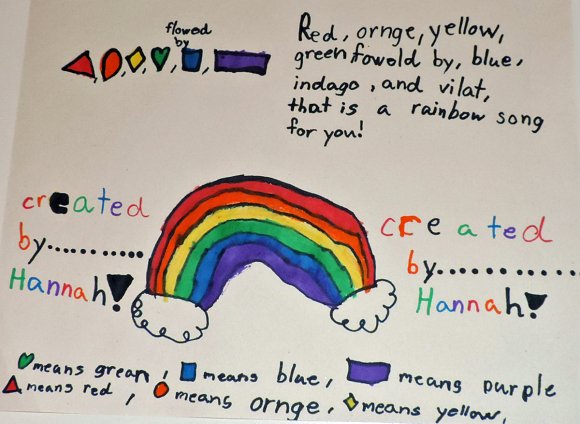 flowed
by
Red, ornge, yellow,
green fowold by, blue,
indago, and vilat,
that is a rainbow song
for you!
created
by...........
Hannah!
created
by..............
Hannah!
means grean, means blue, means purple
means red, means ornge, means yellow,